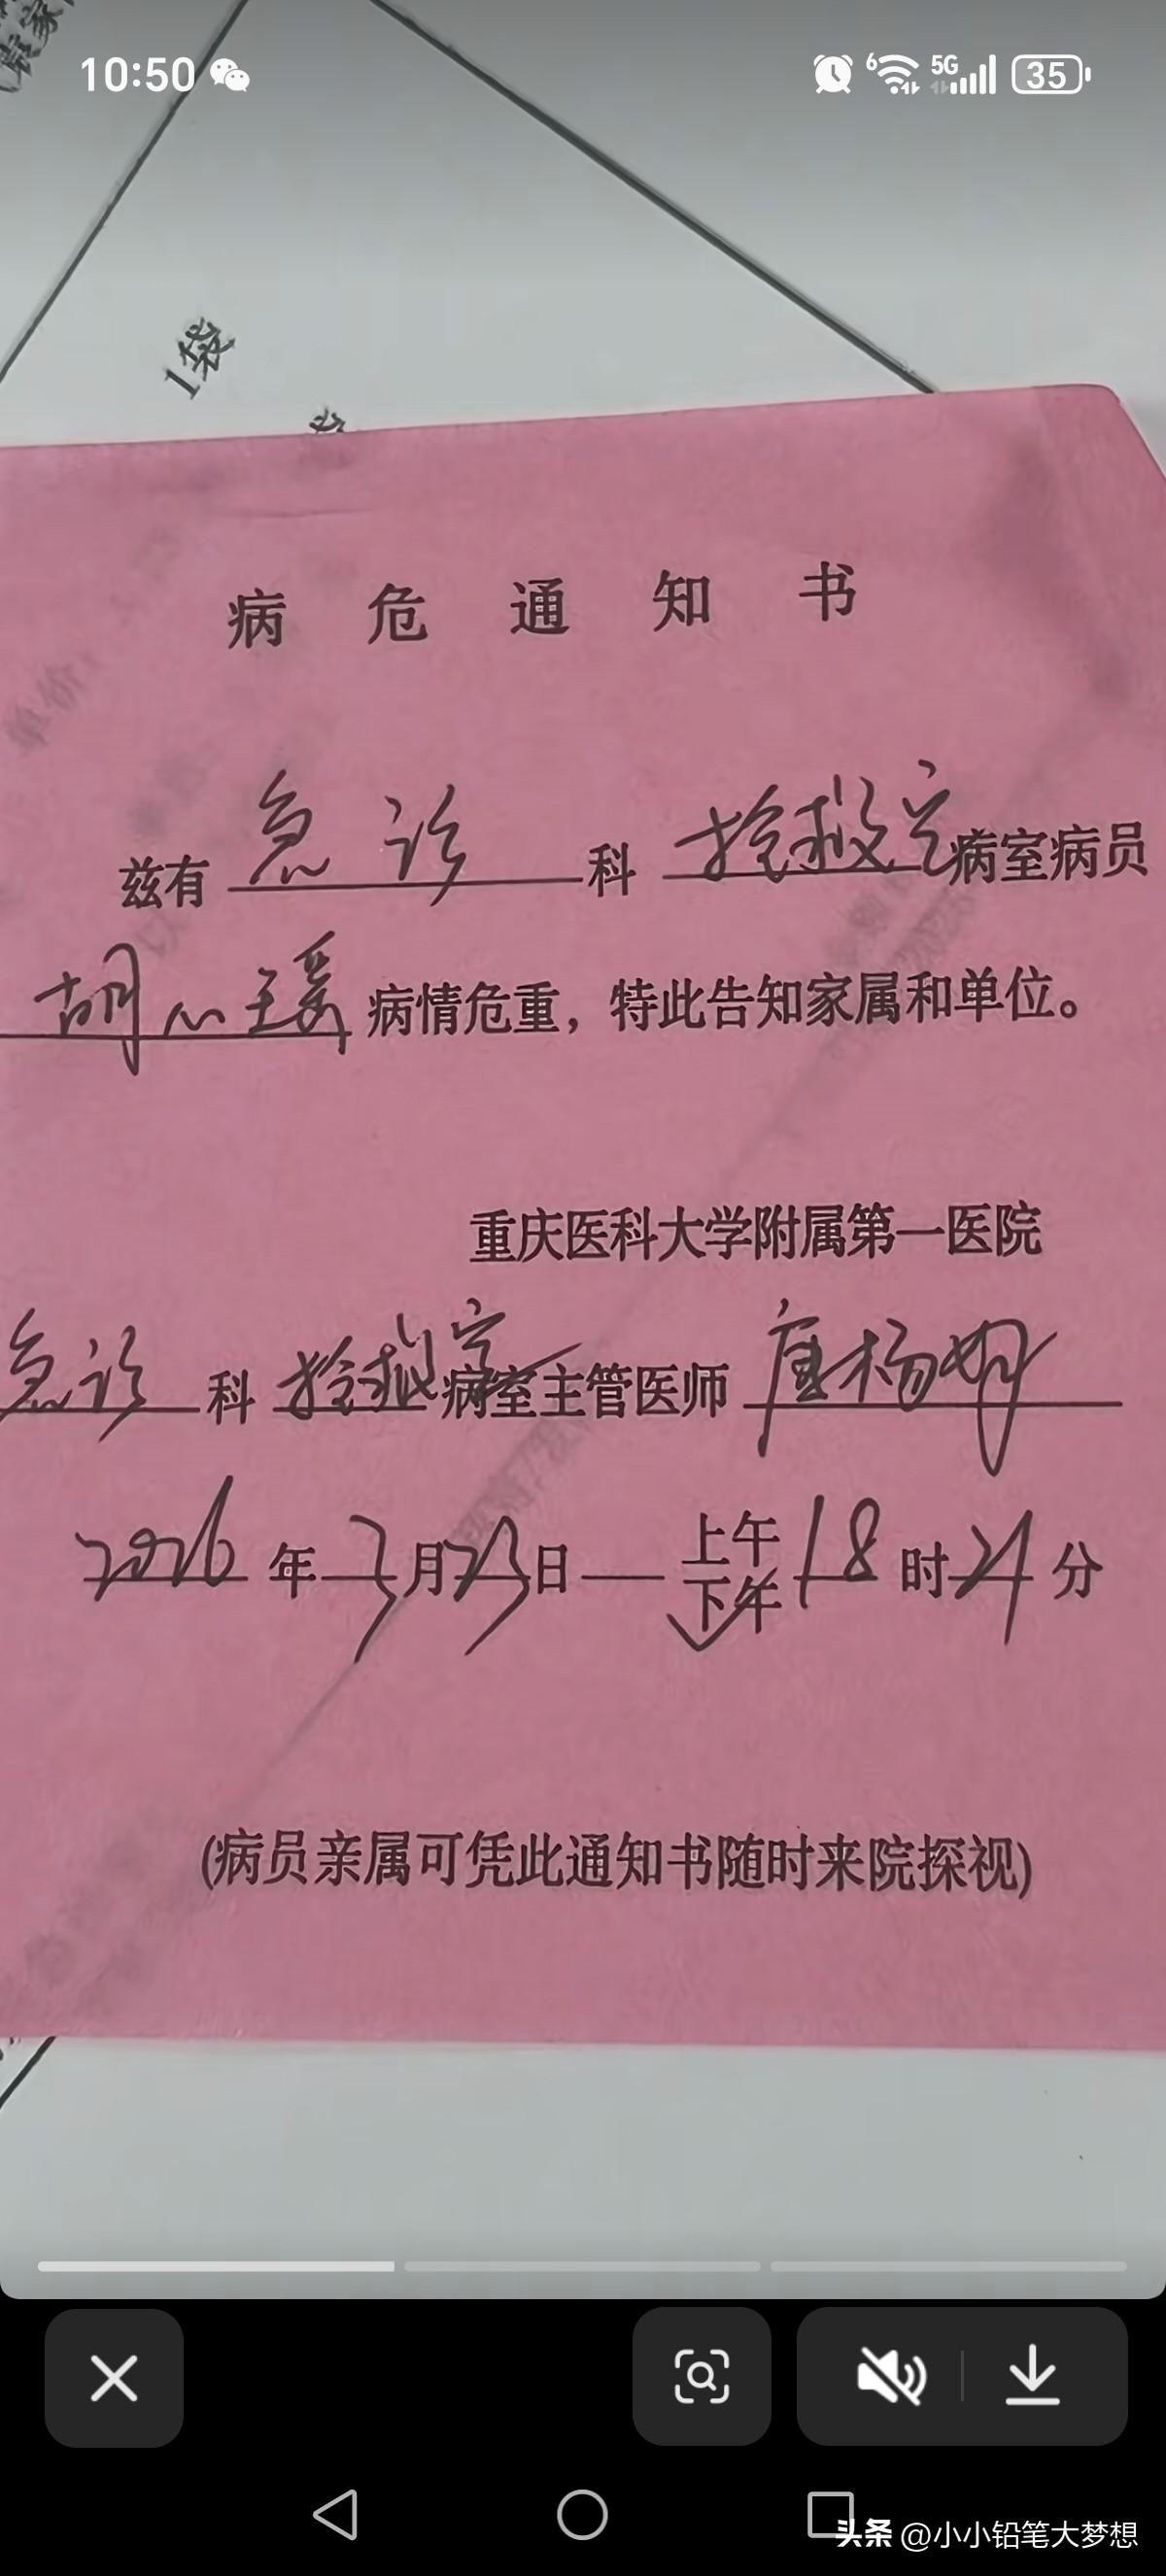 10:50
6 5G 35
1袋
病危通知书
单价
兹有 急诊 科 抢救室 病室病员
胡心瑶 病情危重，特此告知家属和单位。
重庆医科大学附属第一医院
急诊 科 抢救室 病室主管医师 唐杨
2026 年 3 月 23 日 上午 下午 18 时 21 分
(病员亲属可凭此通知书随时来院探视)
头条 @小小铅笔大梦想